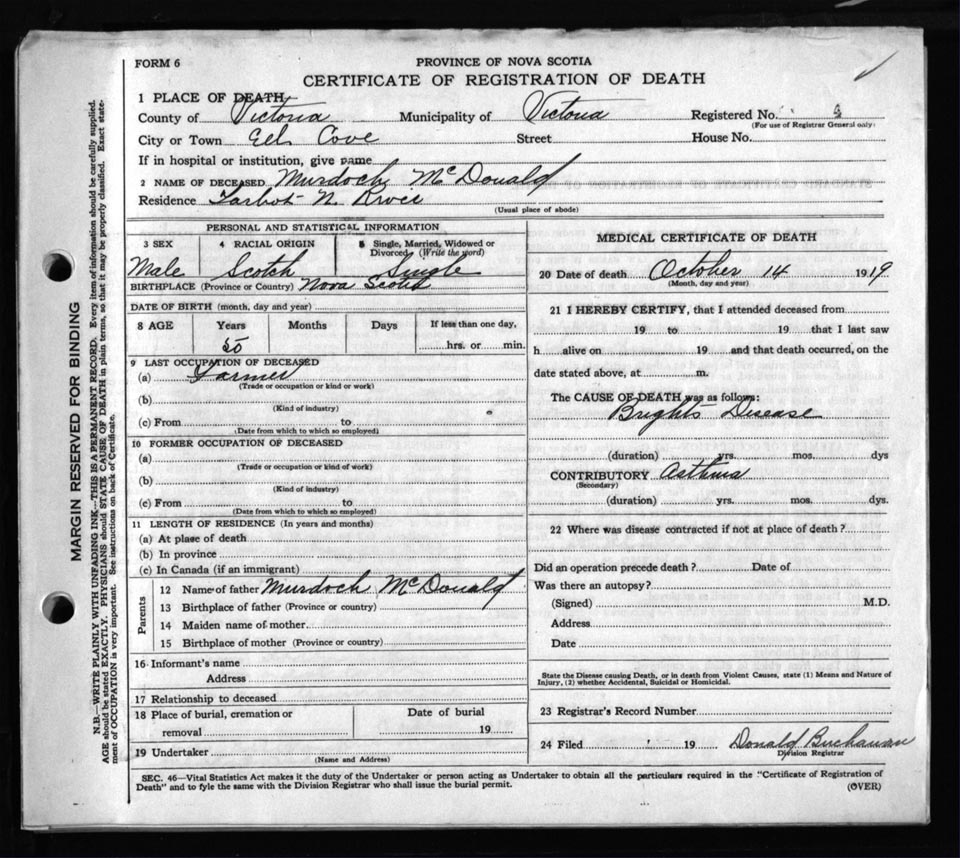 FORM 6
PROVINCE OF NOVA SCOTIA
CERTIFICATE OF REGISTRATION OF DEATH
1 PLACE OF DEATH
County of Victoria Municipality of Victoria Registered No.
(For use of Registrar General only)
City or Town Cove Street House No.
If in hospital or institution, give name
2 NAME OF DECEASED Murdoch McDonald
Residence Tarbot N. River
(Usual place of abode)
PERSONAL AND STATISTICAL INFORMATION
3 SEX 4 RACIAL ORIGIN 5 Single, Married, Widowed or Divorced (Write the word)
Male Scotch Single
BIRTHPLACE (Province or Country) Nova Scotia
DATE OF BIRTH (month, day and year)
8 AGE Years Months Days If less than one day,
50 hrs. or min.
9 LAST OCCUPATION OF DECEASED
(a) Farmer
(Trade or occupation or kind or work)
(b)
(Kind of industry)
(c) From to
(Date from which to which so employed)
10 FORMER OCCUPATION OF DECEASED
(a)
(Trade or occupation or kind of work)
(b)
(Kind of industry)
(c) From to
(Date from which to which so employed)
11 LENGTH OF RESIDENCE (In years and months)
(a) At place of death
(b) In province
(c) In Canada (if an immigrant)
Parents
12 Name of father Murdoch McDonald
13 Birthplace of father (Province or country)
14 Maiden name of mother
15 Birthplace of mother (Province or country)
16 Informant's name
Address
17 Relationship to deceased
18 Place of burial, cremation or removal Date of burial
19
19 Undertaker
(Name and Address)
MEDICAL CERTIFICATE OF DEATH
20 Date of death October 14 1919
(Month, day and year)
21 I HEREBY CERTIFY, that I attended deceased from
19 to 19 that I last saw
h alive on 19 and that death occurred, on the
date stated above, at m.
The CAUSE OF DEATH was as follows:
Brights Disease
(duration) yrs. mos. dys
CONTRIBUTORY Asthma
(Secondary)
(duration) yrs. mos. dys.
22 Where was disease contracted if not at place of death?
Did an operation precede death? Date of
Was there an autopsy?
(Signed) M.D.
Address
Date
State the Disease causing Death, or in death from Violent Causes, state (1) Means and Nature of
Injury, (2) whether Accidental, Suicidal or Homicidal.
23 Registrar's Record Number
24 Filed 19 Donald Buchanan
Division Registrar
SEC. 46—Vital Statistics Act makes it the duty of the Undertaker or person acting as Undertaker to obtain all the particulars required in the "Certificate of Registration of
Death" and to fyle the same with the Division Registrar who shall issue the burial permit.
(OVER)
MARGIN RESERVED FOR BINDING
N.B.—WRITE PLAINLY WITH UNFADING INK—THIS IS A PERMANENT RECORD. Every item of information should be carefully supplied.
AGE should be stated EXACTLY. PHYSICIANS should STATE CAUSE OF DEATH in plain terms, so that it may be properly classified. Exact state-
ment of OCCUPATION is very important. See instructions on back of Certificate.